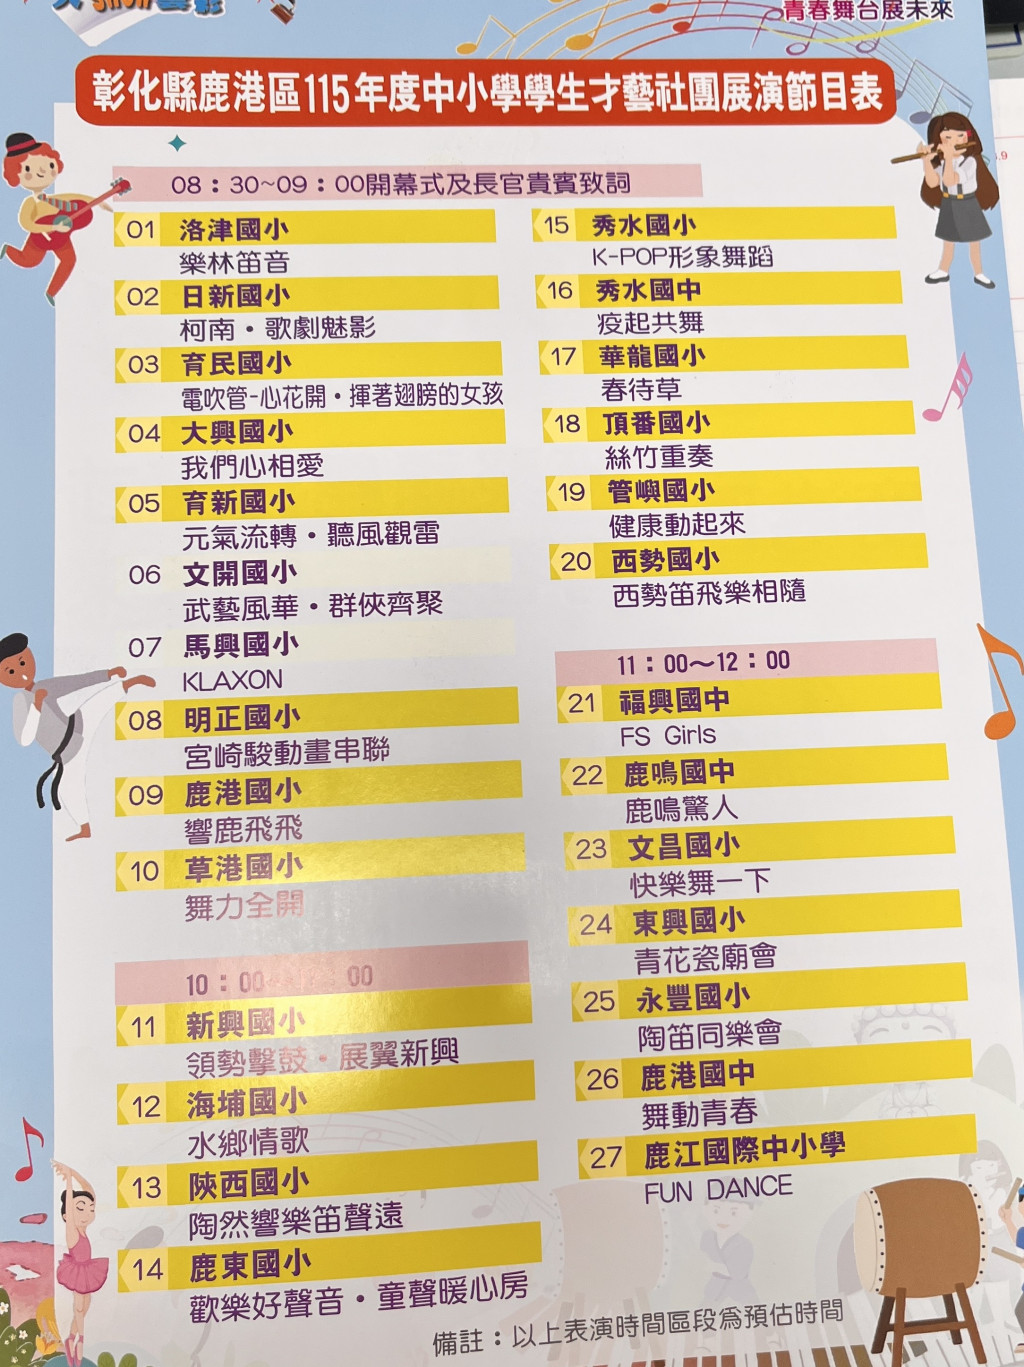 SHOW
青春舞台展未來
彰化縣鹿港區115年度中小學學生才藝社團展演節目表
08：30~09：00開幕式及長官貴賓致詞
01 洛津國小
樂林笛音
02 日新國小
柯南・歌劇魅影
03 育民國小
電吹管-心花開・揮著翅膀的女孩
04 大興國小
我們心相愛
05 育新國小
元氣流轉・聽風觀雷
06 文開國小
武藝風華・群俠齊聚
07 馬興國小
KLAXON
08 明正國小
宮崎駿動畫串聯
09 鹿港國小
響鹿飛飛
10 草港國小
舞力全開
10：00 00
11 新興國小
領勢擊鼓・展翼新興
12 海埔國小
水鄉情歌
13 陝西國小
陶然響樂笛聲遠
14 鹿東國小
歡樂好聲音・童聲暖心房
15 秀水國小
K-POP形象舞蹈
16 秀水國中
疫起共舞
17 華龍國小
春待草
18 頂番國小
絲竹重奏
19 管嶼國小
健康動起來
20 西勢國小
西勢笛飛樂相隨
11：00～12：00
21 福興國中
FS Girls
22 鹿鳴國中
鹿鳴驚人
23 文昌國小
快樂舞一下
24 東興國小
青花瓷廟會
25 永豐國小
陶笛同樂會
26 鹿港國中
舞動青春
27 鹿江國際中小學
FUN DANCE
備註：以上表演時間區段為預估時間